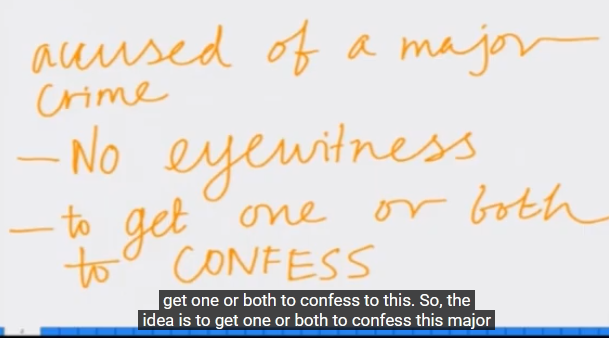 accused of a major
crime
- No eyewitness
- to get one or both
to CONFESS
get one or both to confess to this. So, the
idea is to get one or both to confess this major